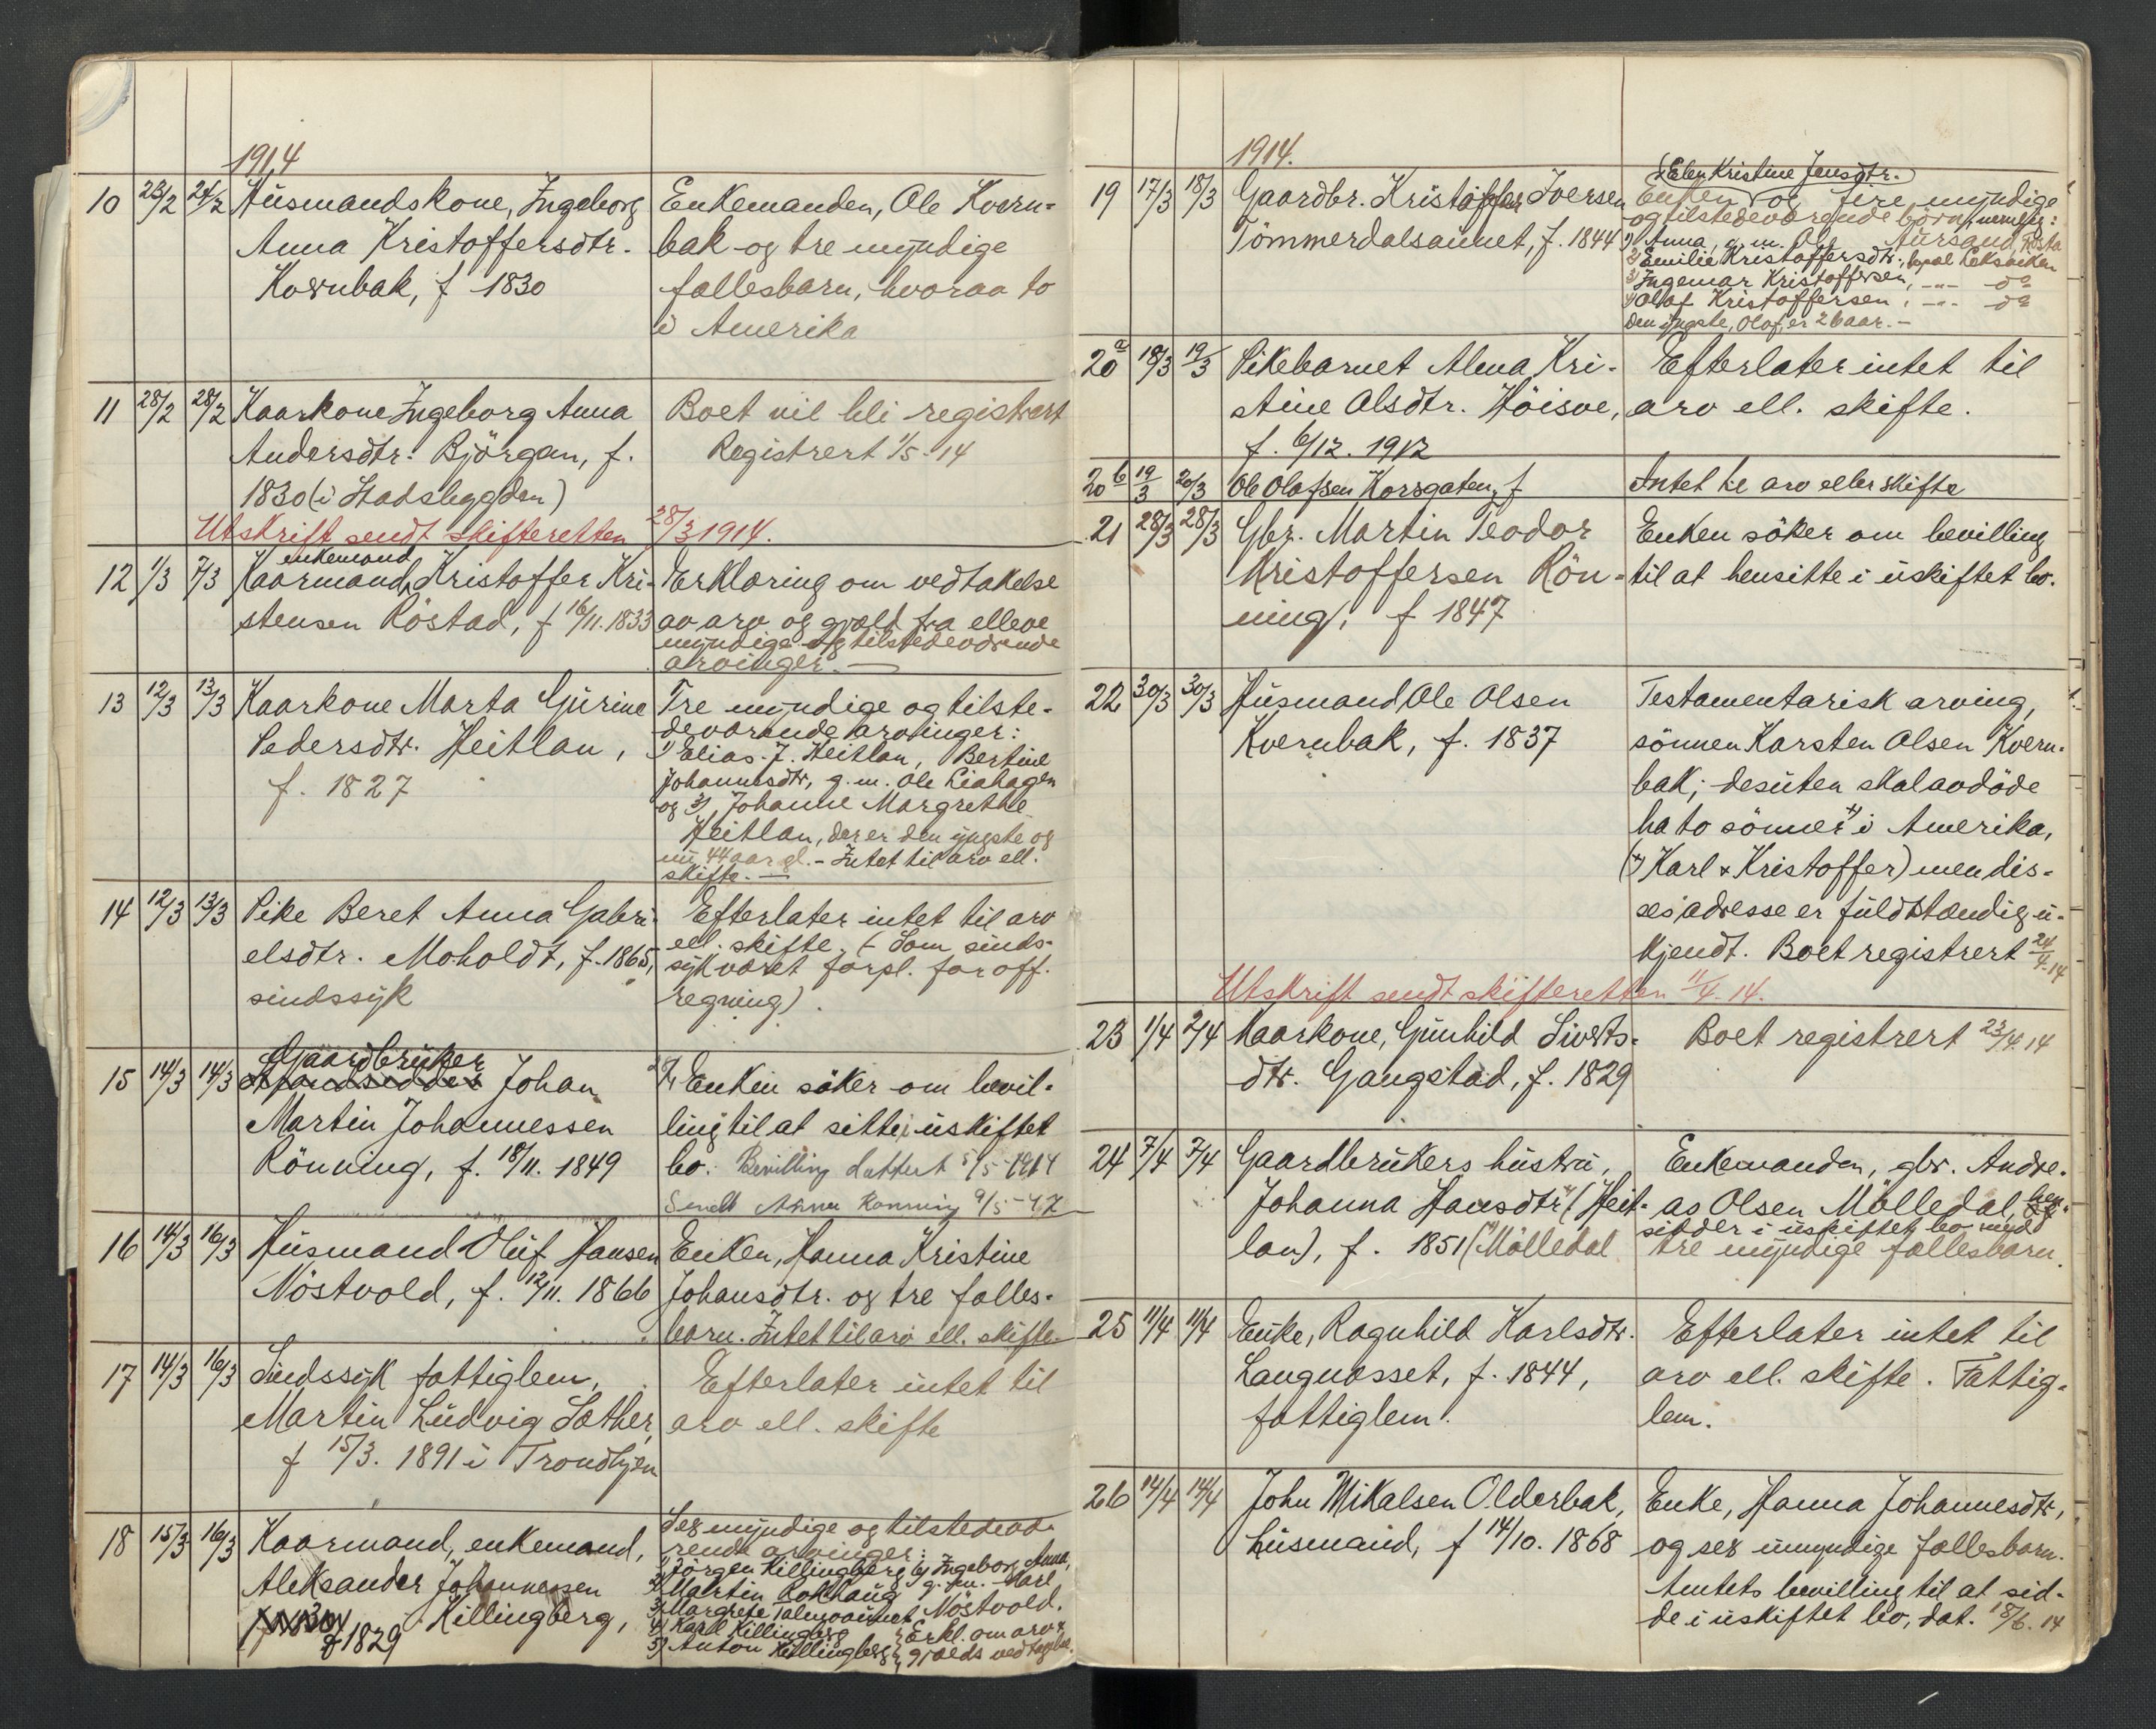 1914
10 23/2 24/2 Husmandskone, Ingeborg
Anna Kristoffersdtr.
Kvernbak, f 1830
Enkemanden, Ole Kvern-
bak og tre myndige
fællesbarn, hvorav to
i Amerika
11 28/2 28/2 Kaarkone Ingeborg Anna
Andersdtr. Björgan, f.
1830 (i Stadsbygden)
Boet vil bli registrert
Registrert 1/5-14
Utskrift sendt skifteretten 28/3 1914.
12 1/3 7/3 Kaarmand, enkemand Kristoffer Kri-
stensen Röstad, f 16/11. 1833
Erklæring om vedtakelse
av arv og gjæld fra elleve
myndige og tilstedeværende
arvinger. —
13 12/3 13/3 Kaarkone Marta Gurine
Pedersdtr. Heitlan,
f. 1827
Tre myndige og tilste-
deværende arvinger:
1) Elias J. Heitlan, Bertine
Johannesdtr, g. m. Ole Liahagen
og 3) Johanne Margrethe
Heitlan, der er den yngste og
nu 44 aar gl. - Intet til arv ell.
skifte. —
14 12/3 13/3 Pike Beret Anna Gabri-
elsdtr. Moholdt, f. 1865,
sindssyk
Efterlater intet til arv
ell. skifte. (Som sinds-
syk været forpl. for off.
regning).
15 14/3 14/3 Gaardbruker Johan
Martin Johannessen
Rönning, f. 18/11. 1849
Enken söker om bevil-
ling til at sitte i uskiftet
bo. Bevilling dattert 5/5-1914
Sendt Anna Rønning 9/5-
16 14/3 16/3 Husmand Oluf Hansen
Nöstvold, f. 12/11. 1866
Enken, Hanna Kristine
Johansdtr. og tre fælles-
barn. Intet til arv ell. skifte.
17 14/3 16/3 Sindssyk fattiglem,
Martin Ludvig Sæther,
f 15/3. 1891 i Trondhjem
Efterlater intet til
arv ell. skifte
18 15/3 16/3 Kaarmand, enkemand,
Aleksander Johannessen
Killingberg,
f 1829
Sex myndige og tilstedevæ-
rende arvinger:
1) Jörgen Killingberg 6) Ingeborg Anna,
2) Martin Rokhaug g. m. Karl
3) Margrete Talmoaunet Nöstvold.
4) Karl Killingberg Erkl. om arv &
5) Anton Killingberg gjælds vedtagelse.
1914.
19 17/3 18/3 Gaardbr. Kristoffer Iversen
Tömmerdalsaunet, f. 1844
Elen Kristine Jensdtr.
Enken og fire myndige
og tilstedeværende börn, nemlig:
1) Anna, g. m. Ole Aursand,
2) Emilie Kristoffersdtr., bopæl Leksviken
3) Ingemar Kristoffersen, -"- do
4) Olaf Kristoffersen, -"- do
Den yngste, Olaf, er 26 aar. -
20a 18/3 19/3 Pikebarnet Alma Kri-
stine Olsdtr. Höisve,
f. 6/12. 1912
Efterlater intet til
arv ell. skifte.
20b 19/3 20/3 Ole Olafsen Korsgaten, f
Intet til arv eller skifte
21 28/3 28/3 Gbr. Martin Teodor
Kristoffersen Rön-
ning, f 1847
Enken söker om bevilling
til at hensitte i uskiftet bo.
22 30/3 30/3 Husmand, Ole Olsen
Kvernbak, f. 1837
Testamentarisk arving,
sönnen Karsten Olsen Kvern-
bak; desuten skal avdöde
ha to sönner +) i Amerika,
(+) Karl & Kristoffer) men dis-
ses adresse er fuldstændig u-
kjendt. Boet registrert 24/4-14
Utskrift sendt skifteretten 11/4. 14.
23 1/4 2/4 Kaarkone, Gunhild Siverts-
dtr. Gangstad, f. 1829
Boet registrert 23/4 14
24 7/4 7/4 Gaardbrukers hustru,
Johanna Hansdtr. (Heit-
lan), f. 1851 (Mölledal
Enkemanden, gbr. Andre-
as Olsen Mölledal, hen-
sidder i uskiftet bo med
tre myndige fællesbarn.
25 11/4 11/4 Enke, Ragnhild Karlsdtr.
Langnesset, f. 1844,
fattiglem.
Efterlater intet til
arv ell. skifte. Fattig-
lem.
26 14/4 14/4 John Mikalsen Olderbak,
husmand, f 14/10. 1868
Enke, Hanna Johannesdtr,
og sex umyndige fællesbarn.
Amtets bevilling til at sid-
de i uskiftet bo, dat. 18/6. 14